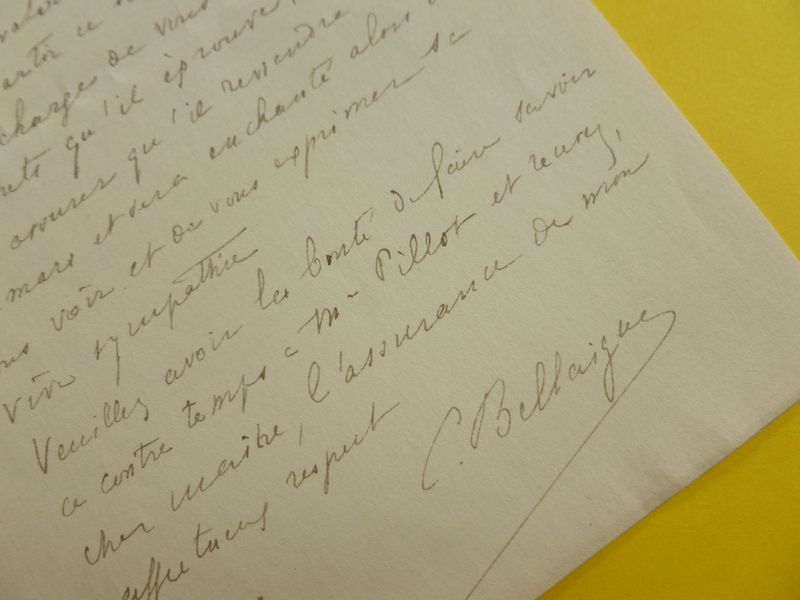 charge de vous
qu'il éprouve,
assurer qu'il reviendra
mars et sera enchanté alors
voir et de vous exprimer sa
vive sympathie
Veuillez avoir la bonté de faire savoir
ce contre temps à Mr Pillot et recevez,
cher maître, l'assurance de mon
affectueux respect
C. Bellaigue